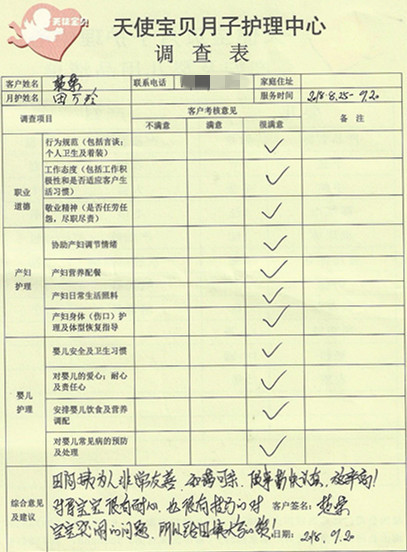 天使宝贝
天使宝贝月子护理中心
调查表
客户姓名 联系电话 家庭住址
月护姓名 服务时间 2018.8.25-9.20
调查项目 客户考核意见 备注
不满意 满意 很满意
职业道德
行为规范（包括言谈；个人卫生及着装） ✓
工作态度（包括工作积极性和是否适应客户生活习惯） ✓
敬业精神（是否任劳任怨，尽职尽责） ✓
产妇护理
协助产妇调节情绪 ✓
产妇营养配餐 ✓
产妇日常生活照料 ✓
产妇身体（伤口）护理及体型恢复指导 ✓
婴儿护理
婴儿安全及卫生习惯 ✓
对婴儿的爱心；耐心及责任心 ✓
安排婴儿饮食及营养调配 ✓
对婴儿常见病的预防及处理 ✓
综合意见及建议
田阿姨为人非常友善 做事勤快认真，效率高！
对看宝宝很有耐心，也很有技巧的对
客户签名：
宝宝哭闹的问题，所以给田姨大大的赞！
日期：2018.9.20